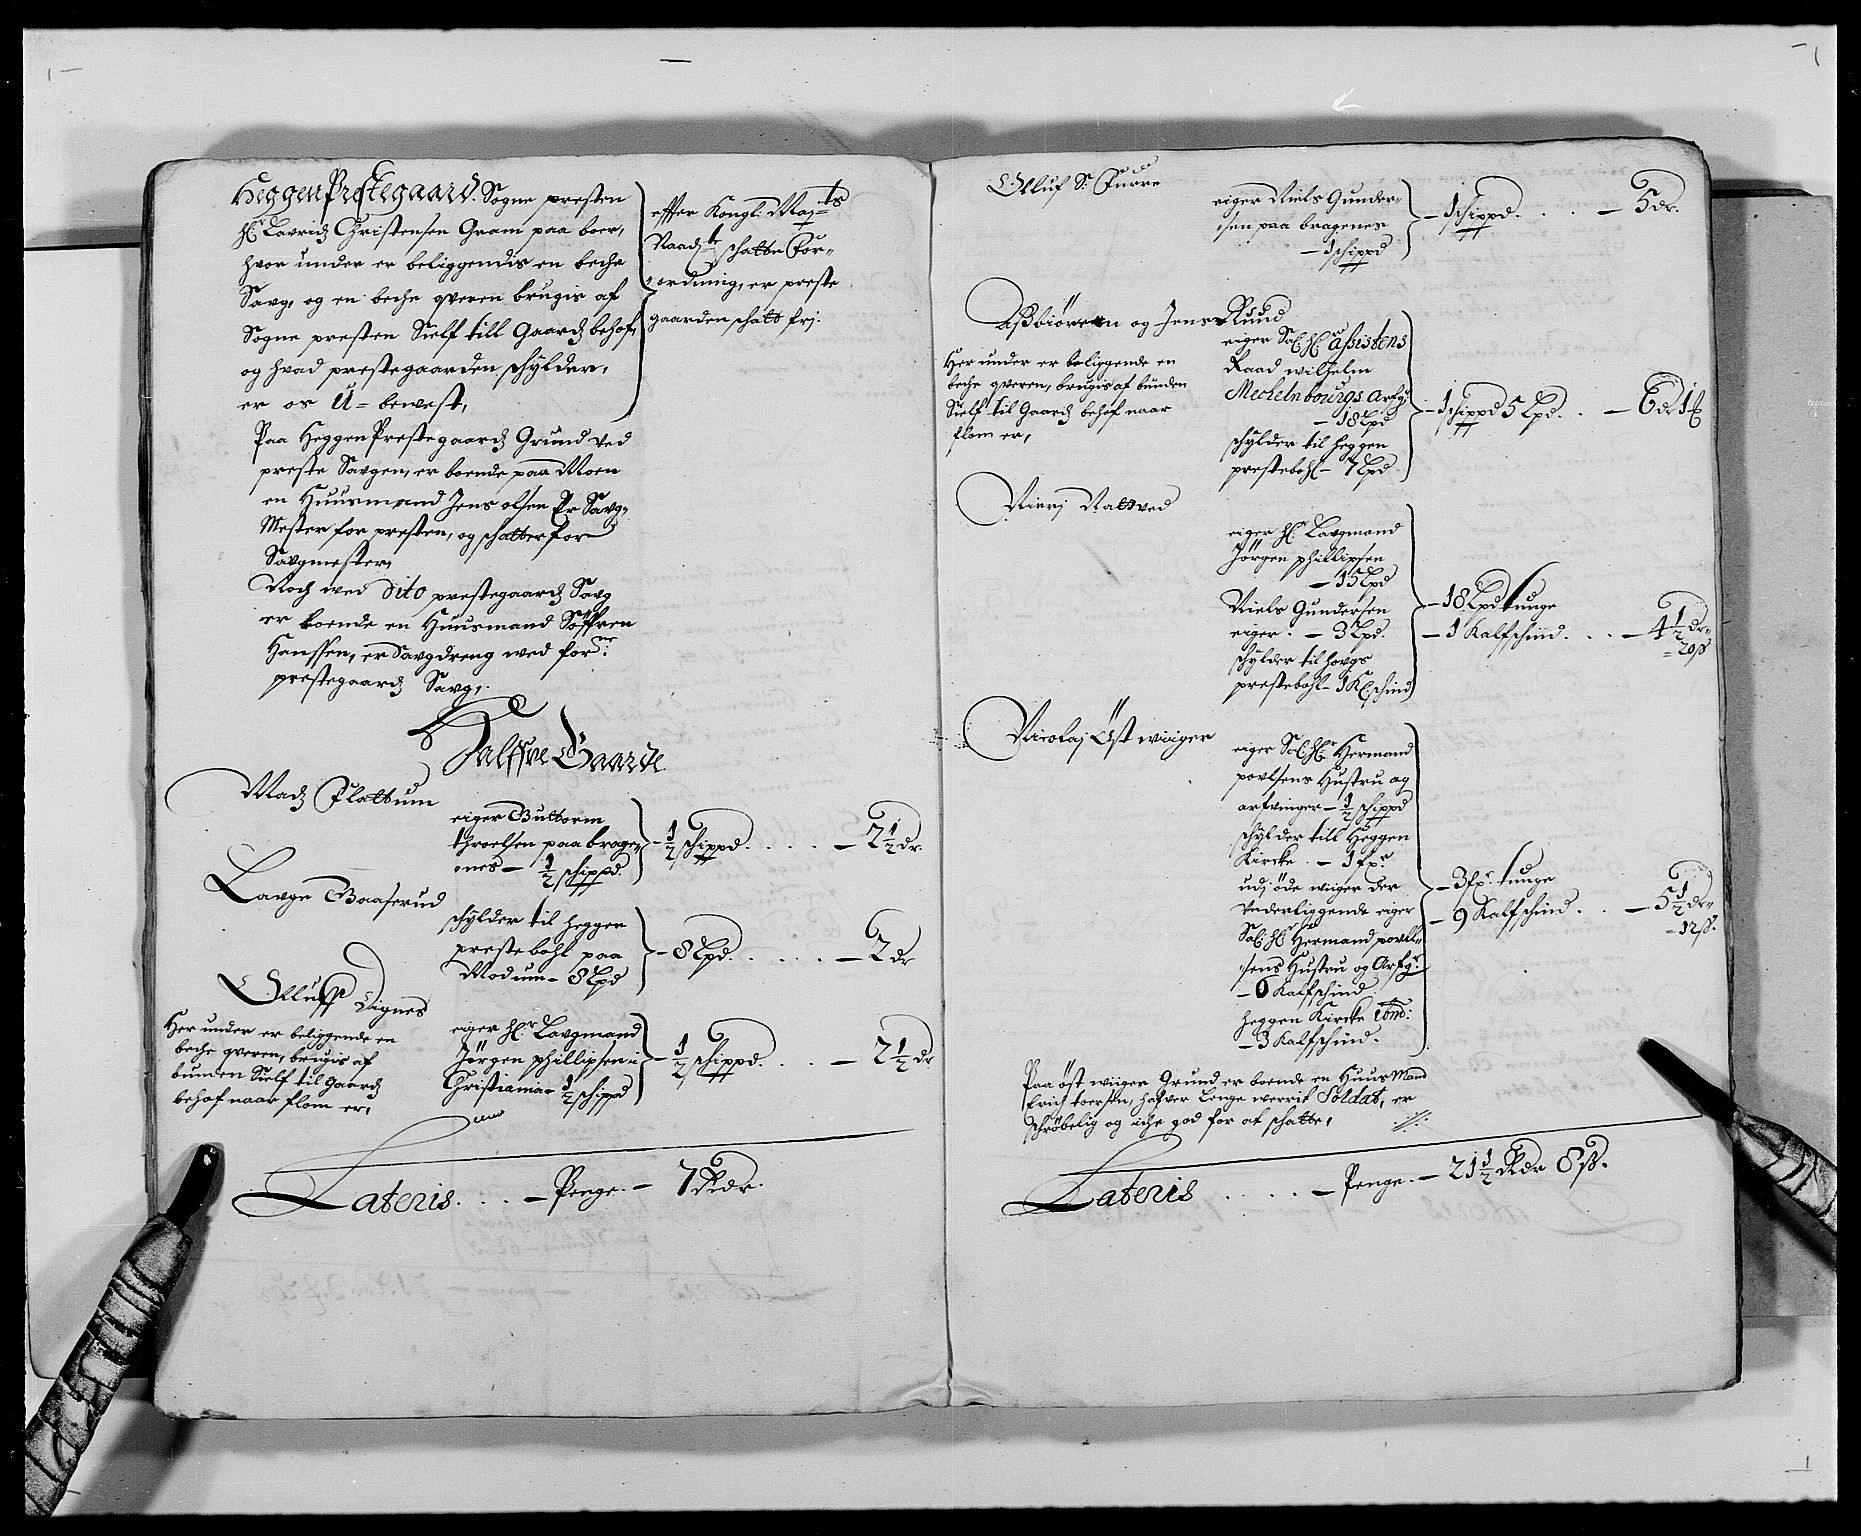 Heggen Prestegaard. Sogne presten
hr. Lavridz Christensen Gram paa boer,
hvor under er beliggendis en beche
Saug, og en beche qveren brugis af
Sogne presten Sielf till Gaardz behof,
og hvad prestegaarden schylder,
er os U-bewest,
effter Kongl: Maj:ts
Naadte schatte For-
ordning, er preste
gaarden schatt frj.
Paa Heggen Prestegaardz Grund ved
preste Saugen, er boende paa Moen
en Huusmand Jens olsen Er Saug-
Mester for presten, og schatter for
Saugmester,
Noch wed dito prestegaardz Saug
er boende en Huusmand Söffren
Hanssen, er Saugdreng wed forne:
prestegaardz Saug,
Halffve Gaarde
Madz Flattum
eiger Guttorm
throelsen paa brage-
nes - 1/2 schippd.
- 1/2 schippd. . . . . - 2 1/2 dr.
Lavge Gaaserud
schylder til heggen
prestebohl paa
Modum - 8 Lpd
- 8 Lpd. . . . . . - 2 dr
Olluff Vignes
Her under er beliggende en
beche qveren, brugis af
bunden Sielf til Gaardz
behof naar flom er,
eiger hr. Laugmand
Jörgen phillipsen i
Christiania - 1/2 schippd
- 1/2 schippd. . . . - 2 1/2 dr
Lateris. . . . - Penge. - 7 Rdr.
Olluf Sr. Furre
eiger Niels Gunder-
sen paa bragenes
- 1 schippd
- 1 schippd. . . . - 5 dr.
Aßbiören og Jens Ruud
Her under er beliggende en
beche qveren, brugis af bunden
Sielf til Gaardz behof naar
flom er,
eiger Sal. hr. Assistens
Raad wilhelm
Mechelnbourgs arfg:
- 18 Lpd
schylder til heggen
prestebohl - 7 Lpd
- 1 schippd 5 Lpd. . . - 6 dr 1 
Nierj Nattved
eiger hr. Laugmand
Jörgen phillipsen
- 15 Lpd
Niels Gundersen
eiger. - 3 Lpd.
schylder til hougs
prestebohl - 1 K: schind
- 18 Lpd tunge
- 1 Kalfschind. . . . - 4 1/2 dr.
- 20 ß
Nicolaj Öst wiiger
eiger Sal. hr. Hermand
povlsens Hustru og
arfvinger - 1/2 schippd
schylder till Heggen
Kircke. - 1 fxr
udj öde wiiger der
Underliggende eiger
Sal. hr. Hermand povel-
sens Hustru og Arfgr
- 6 Kalfschind
heggen Kircke
- 3 Kalfschind.
- 3 fxr. tunge
- 9 Kalfschind. . . - 5 1/2 dr.
- 12 ß.
Paa öst wiiger Grund er boende en Huus Mand
Erich toersen, hafver Lenge werrit Soldat, er
schröbelig og iche god for at schatte,
Lateris . . . . - Penge. - 21 1/2 Rdr 8 ß.